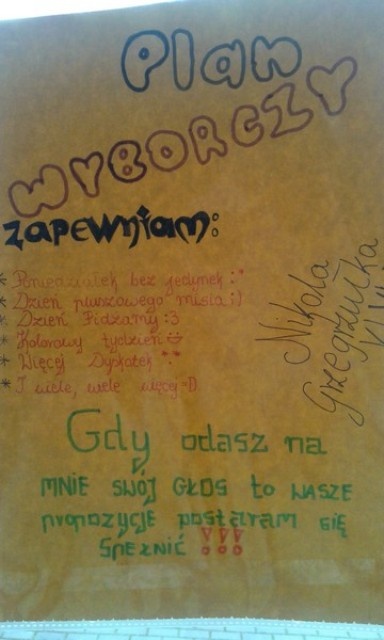 Plan
WYBORCZY
zapewniam:
* Poniedziałek bez jedynek :*
* Dzień pluszowego misia :)
* Dzień Pidżamy :3
* Kolorowy tydzień
* Więcej Dyskotek
* I wiele, wiele więcej =D
Nikola
Grzegrzułka
Gdy odasz na
MNIE SWÓJ GŁOS to WASZE
propozycje postaram się
SPEŁNIĆ !!!